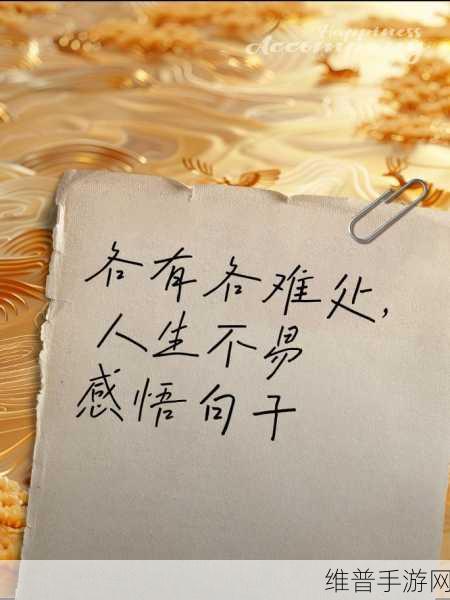 Happiness
Accompany
各有各难处,
人生不易
感悟句子
维普手游网